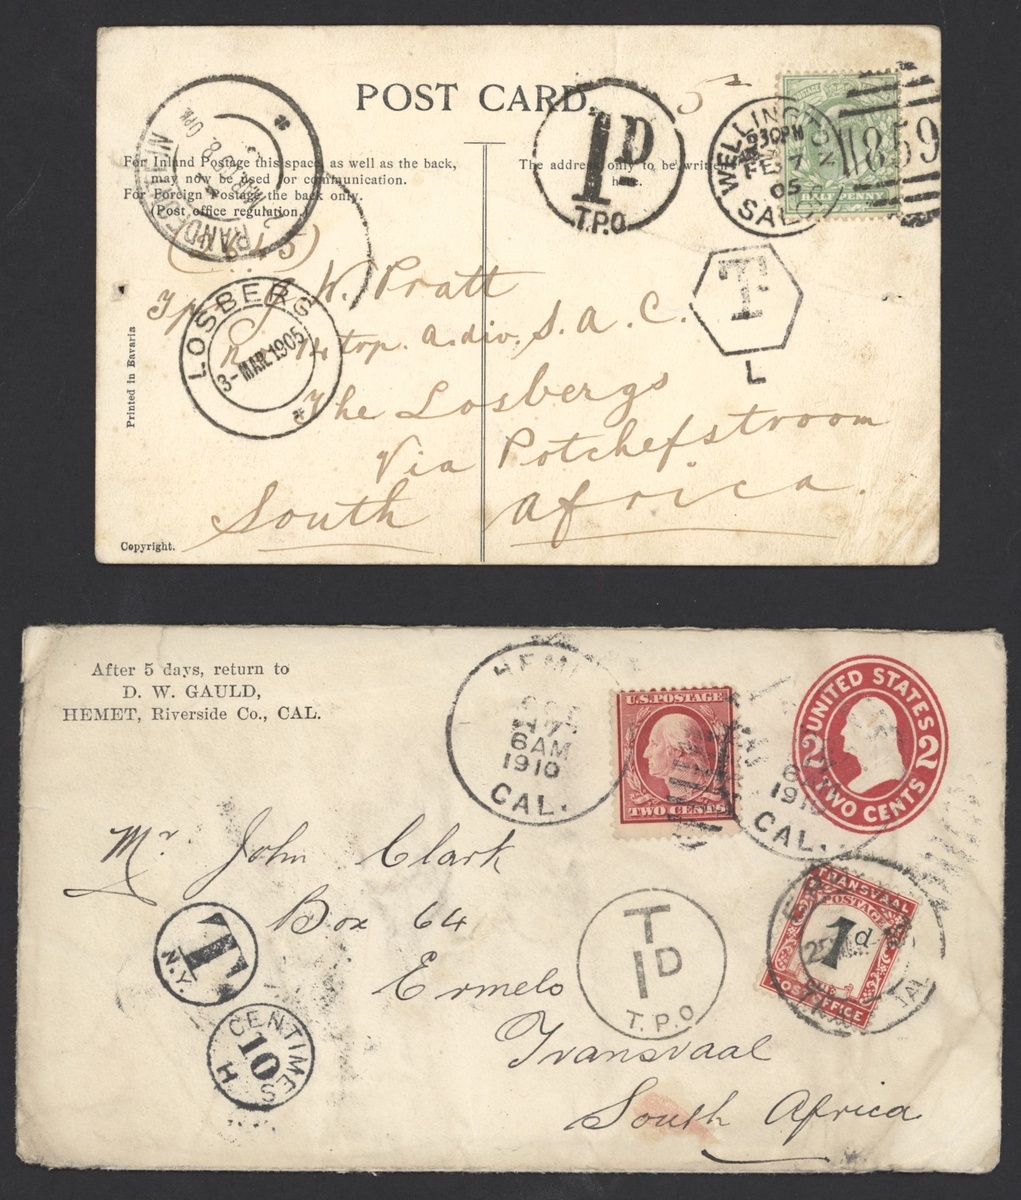 POST CARD
For Inland Postage this space, as well as the back,
may now be used for communication.
For Foreign Postage the back only.
(Post office regulation.)
The address only to be written
here.
RANDFONTEIN
1D
T.P.O.
WELLINGTON
9 30PM
FE 7
05
SALOP
859
HALF PENNY
T
L
LOSBERG
3-MAR.1905
W. Pratt
top. a. div. S. A. C.
The Losbergs
Via Potchefstroom
South Africa.
Printed in Bavaria
Copyright.
After 5 days, return to
D. W. GAULD,
HEMET, Riverside Co., CAL.
HEMET
6AM
1910
CAL.
U.S. POSTAGE
TWO CENTS
1910
CAL.
UNITED STATES
2 2
TWO CENTS
Mr John Clark
Box 64
Ermelo
Transvaal
South Africa
T
N.Y.
CENTIMES
10
H
T
1D
T.P.O
TRANSVAAL
POSTAGE
1d
POST OFFICE